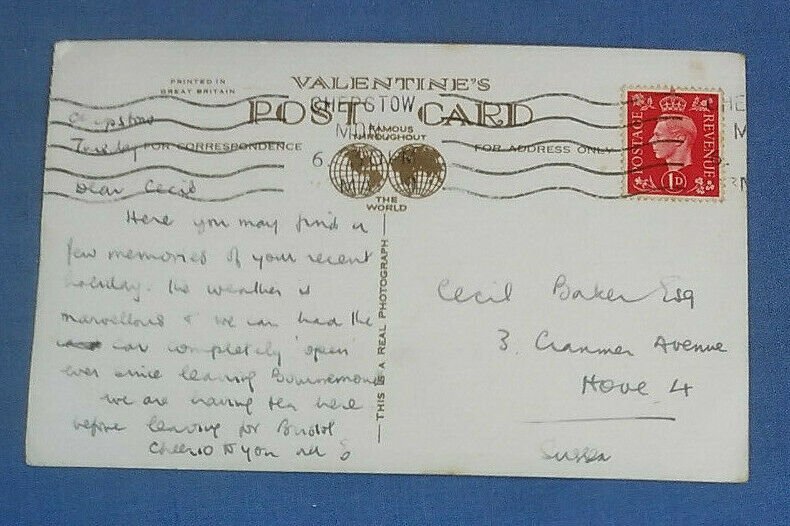 PRINTED IN
GREAT BRITAIN
VALENTINE'S
POST CARD
CHEPSTOW
MON
FAMOUS
THROUGHOUT
THE
WORLD
FOR CORRESPONDENCE
FOR ADDRESS ONLY
THIS IS A REAL PHOTOGRAPH
POSTAGE
REVENUE
1D
Chepstow
Tuesday
Dear Cecil
Here you may find a
few memories of your recent
holiday. The weather is
marvellous & we have had the
car completely 'open'
ever since leaving Bournemouth
we are having tea here
before leaving for Bristol
Cheerio to you all S
Cecil Baker Esq
3. Cranmer Avenue
Hove 4
Sussex